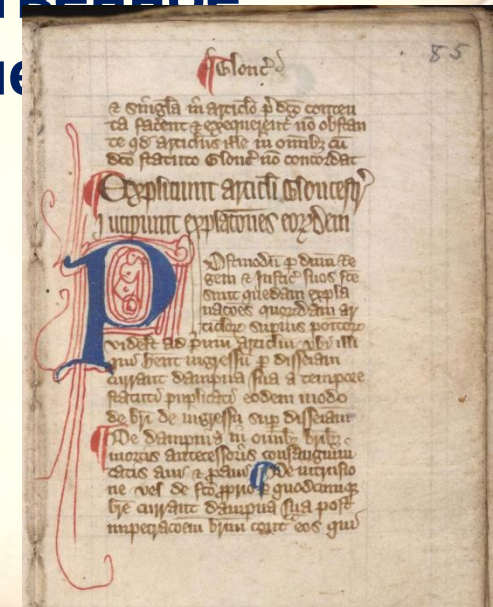 85
Glouc̄
⁊ singla in articlo p̄dc̄o conten
ta facent ⁊ exequerent̉ nō obstan
te qd̉ articlus ille in om̄ibȝ cū
dc̄o statuto Glouc̄ nō concordat
Expliciunt articli Gloucestr̉
incipiunt explac̄ones eorȝdem
Postmodū p̲ dn̄m Re
gem ⁊ Justic̄ suos fc̄e
sunt quedam expla
nac̄oes quorȝdam ar
ticlorȝ supius poitorȝ
videlt̄ ad p̉mū articlm̄ vbi illi
qui hēnt ingressū p̲ disseiam
currant dampna sua a tempore
statuti puplicati eodem modo
de br̄i de ingressu sup̲ disseiam
De dampnis in om̄ibȝ br̄ibȝ
mortis antecessoris consanguini
tatis aui ⁊ p̲aui De intrusio
ne vel de fc̄o p̲prio p̲ quodcumqȝ
br̄e currant dampna sua post
impetrac̄oem br̄ium cont̉ eos qui